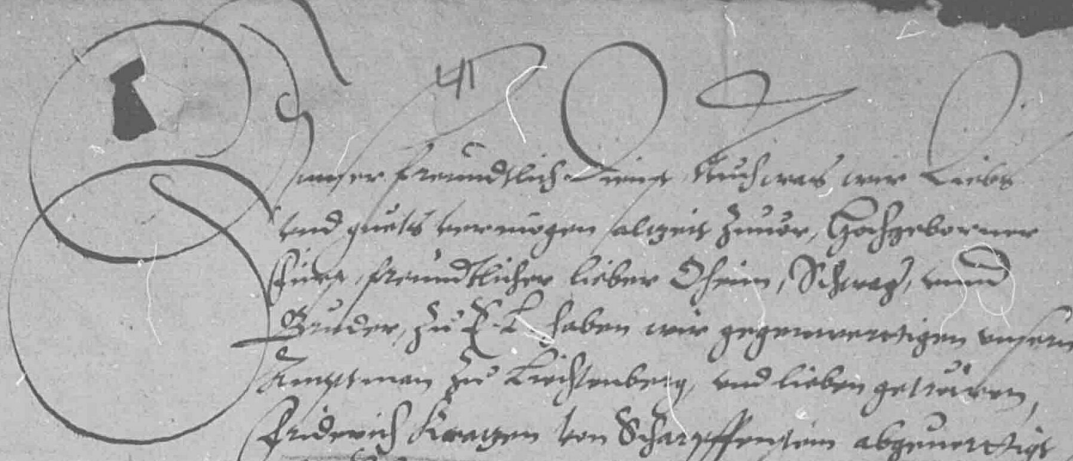 41
Unnser freundtlich Dienst, Auch was wir Liebs
vnd guets vermögen alzeit zuuor, Hochgeborner
Fürst, freundtlicher lieber Oheim, Schwag', vnnd
Bruder, Zu E. L. haben wir gegenwerttigen vnsern
Amptman zu Liechtenberg, vnd lieben getrewen,
Friderich Kratzen von Scharpffenstein abgeuerttigt